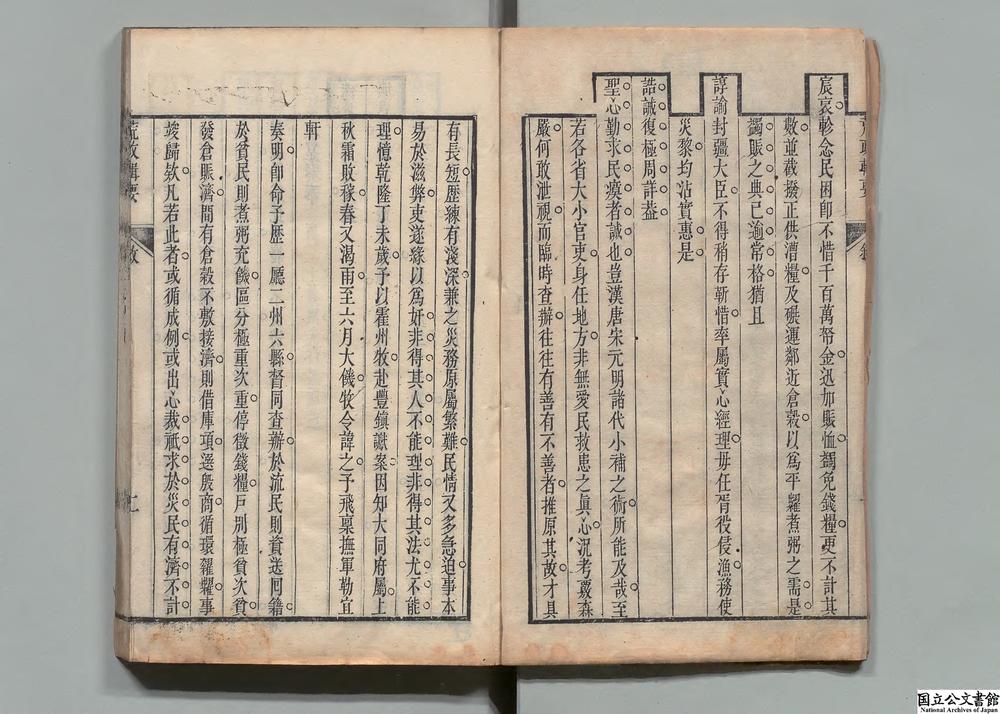 宸衷軫念民困卽不惜千百萬帑金迅加賑恤蠲免錢糧更不計其
數並截撥正供漕糧及碾運鄰近倉穀以爲平糶煮粥之需是
蠲賑之典已逾常格猶且
諄諭封疆大臣不得稍存靳惜率屬實心經理毋任胥役侵漁務使
災黎均沾實惠是
誥誡復極周詳葢
聖心勤求民瘼者誠也豈漢唐宋元明諸代小補之術所能及哉至
若各省大小官吏身任地方非無愛民救患之眞心況考覈森
嚴何敢泄視而臨時查辦往往有善有不善者推原其故才具
有長短歷練有淺深兼之災務原屬繁難民情又多急迫事本
易於滋弊吏遂緣以爲奸非得其人不能理非得其法尤不能
理憶乾隆丁未歲予以霍州牧赴豐鎮讞案因知大同府屬上
秋霜敗稼春又渴雨至六月大饑牧令諱之予飛稟撫軍勒宜
軒
奏明卽命予歷一廳二州六縣督同查辦於流民則資送囘籍
於貧民則煮粥充饑區分極重次重停徵錢糧戶別極貧次貧
發倉賑濟間有倉穀不敷接濟則借庫項選殷商循環糴糶事
竣歸欵凡若此者或循成例或出心裁祇求於災民有濟不計
荒政輯要
敘
国立公文書館
National Archives of Japan